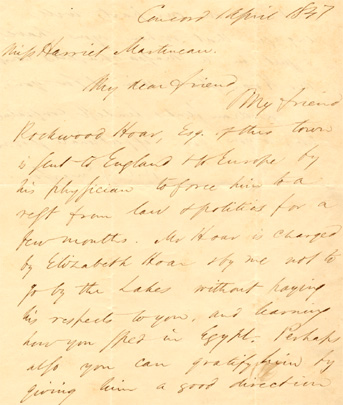 Concord 1 April 1847
Miss Harriet Martineau.
My dear friend,
My friend
Rockwood Hoar, Esq. of this town
is sent to England & to Europe by
his physician to force him to a
rest from law & politics for a
few months. Mr Hoar is charged
by Elizabeth Hoar & by me not to
go by the Lakes without paying
his respects to you, and learning
how you sped in Egypt. Perhaps
also you can gratify him by
giving him a good direction